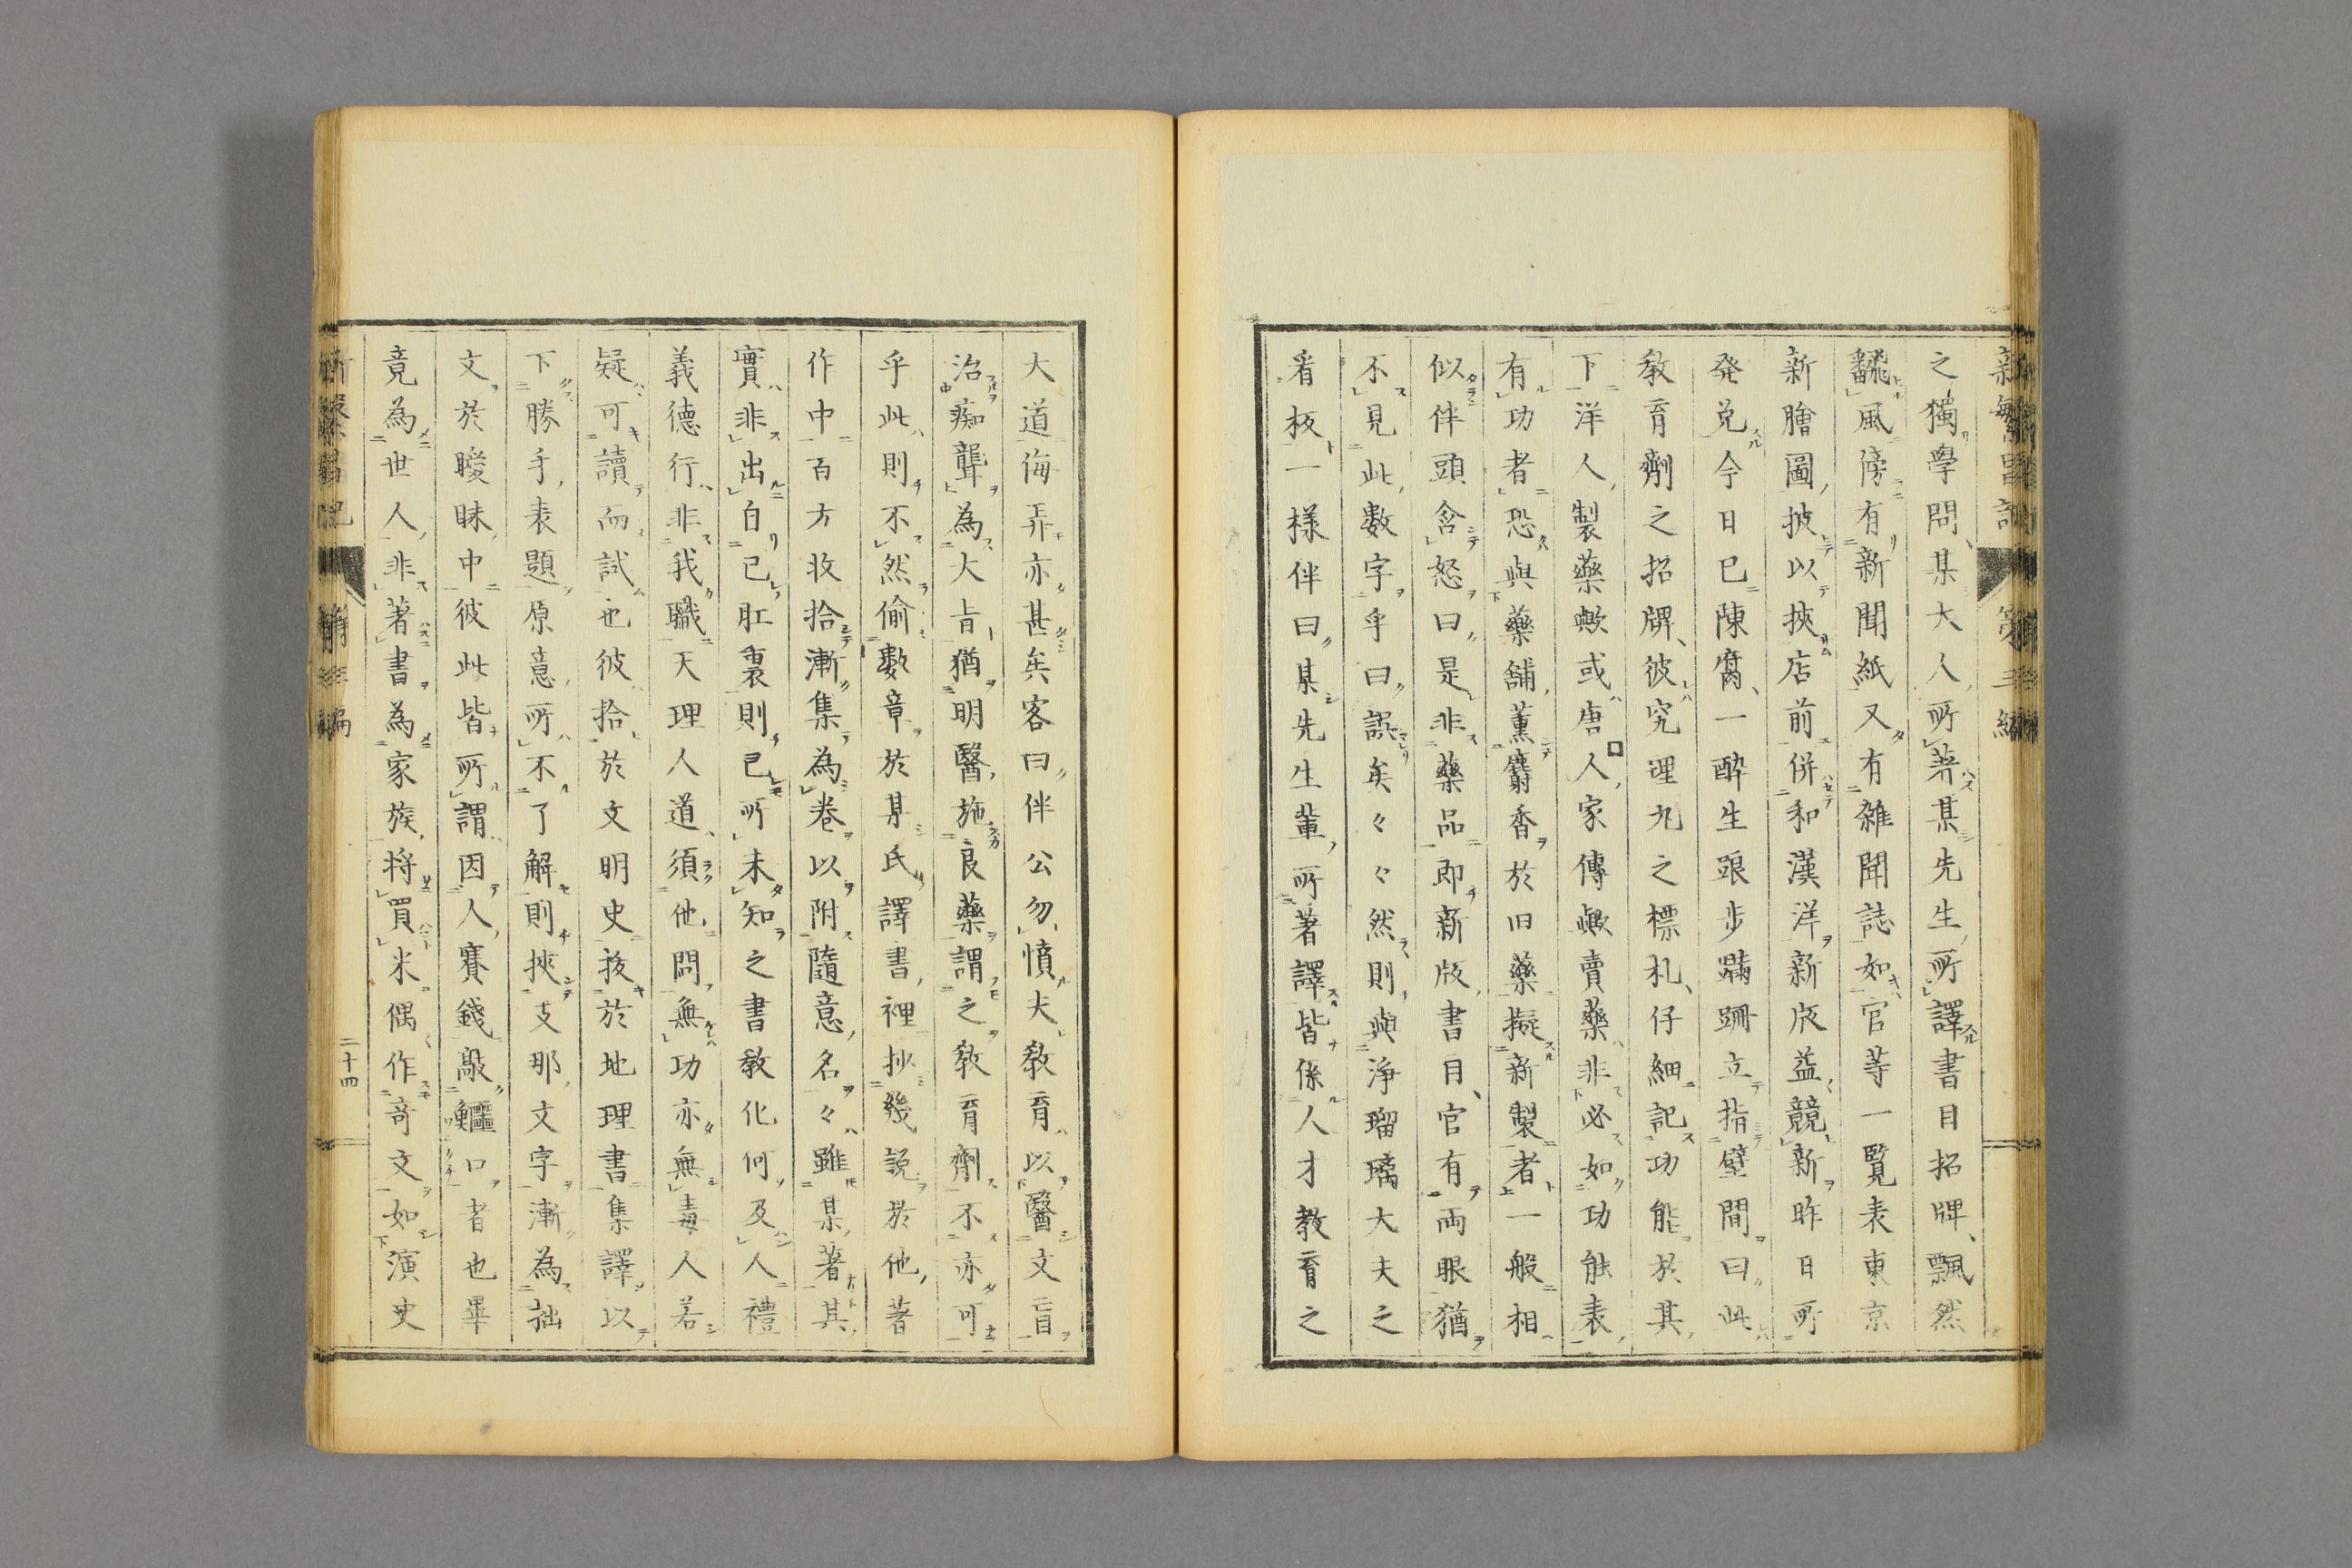 之獨學問、某大人所著某先生所譯書目招牌、飄然
翻風傍有新聞紙又有雜聞誌如官等一覽表東京
新膾圖披以挾店前併和漢洋新版益競新昨日所
発兌今日已陳腐、一酔生踉步蹣跚立指壁間曰此
教育劑之招牌、彼究理丸之標札、仔細記功能於其
下洋人製藥歟或唐人家傳歟賣藥非必如功能表
有功者恐與藥舖薰麝香於旧藥擬新製者一般相
似伴頭含怒曰是非藥品即新版書目、官有両眼猶
不見此數字乎曰誤矣々々然則與淨瑠璃大夫之
看板一樣伴曰某先生輩所著譯皆係人才教育之
大道侮弄亦甚矣客曰伴公勿憤夫教育以醫文盲
治痴聾為大旨猶明醫施良藥謂之教育劑不亦可
乎此則不然偷數章於某氏譯書裡抄幾説於他著
作中百方收拾漸集為卷以附隨意名々雖某著其
實非出自己肚裏則己所未知之書教化何及人禮
義德行非我職天理人道須他問無功亦無毒人若
疑可讀而試也彼拾於文明史拔於地理書集譯以
下勝手表題原意所不了解則挾支那文字漸為拙
文於曖昧中彼此皆所謂因人賽錢敲鰐口者也畢
竟為世人非著書為家族將買米偶作奇文如演史
新繁昌記 第三編 二十四